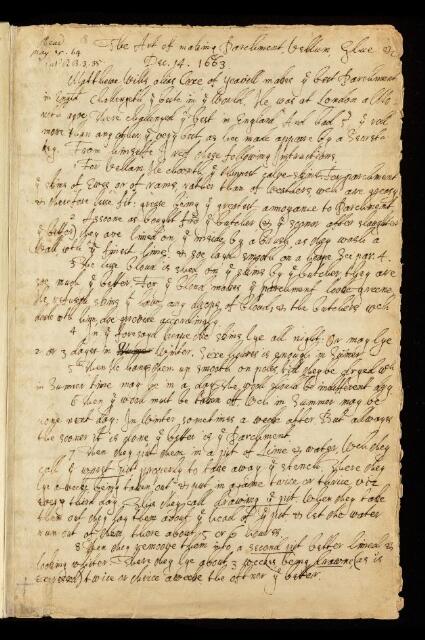 Read
may 25. 64
The Art of making Parchment, Vellum, Glue &c
Dec. 14. 1663
Matthew Wills alias Cree of Yeavell makes yᵉ best Parchment
in Engld challengeth yᵉ bute in yᵉ World. He was at London
there challenged yᵉ best in England And had
more than any other, & very
From himselfe I rec these following Instructions.
For Vellum He chooseth yᵉ thinnest calve skins. For parchment
yᵉ skins of Ewes or of rams, rather than of weathers wch are greasy
& therefore lesse fit: grease being yᵉ greatest annoyance to Parchment.
2 Assoone as bought from yᵉ butcher (& yᵉ sooner after slaughter
yᵉ better) they are limed on yᵉ inside by a brush, as they wash a
Wall wth yᵉ finest lime, & soe layd smooth on a heape See par. 4.
3 The lesse bloud is shed on yᵉ skins by yᵉ butcher, they are
soe much yᵉ better. For yᵉ bloud makes yᵉ parchment looke greene.
He returns skins yᵗ have any drops of bloud, & the butchers wch
deale wth him doe observe accordingly.
4 In yᵉ foresayd heape the skins lye all night: Or may lye
2 or 3 dayes in Winter. Sixe houres is enough in Sumer.
5 then he hangs them up smooth on poles, till they be dryed wch
in Sumer time may be in a day, the wool should be indifferent dry
6 then yᵉ wool must be taken of Wch in Summer may be
done next day: In Winter sometimes a weeke after But allwayes
the sooner it is done yᵉ better is yᵉ Parchment.
7 Then they put them in a pit of Lime & water, Wch they
call yᵉ wast pit properly to take away yᵉ stench. There they
lye a weeke being taken out & put in againe twice or thrice, viz
every third day. This they call drawing yᵉ pit When they take
them out they lay them about yᵉ head of yᵉ pit & let the water
run out of them there about 5 or 6 houres.
8 Then they remoove them into a second pit better limed &
looking whiter. There they lye about 3 weekes being drawne (as is
expressed) twice or thrice a weeke the oftner yᵉ better.